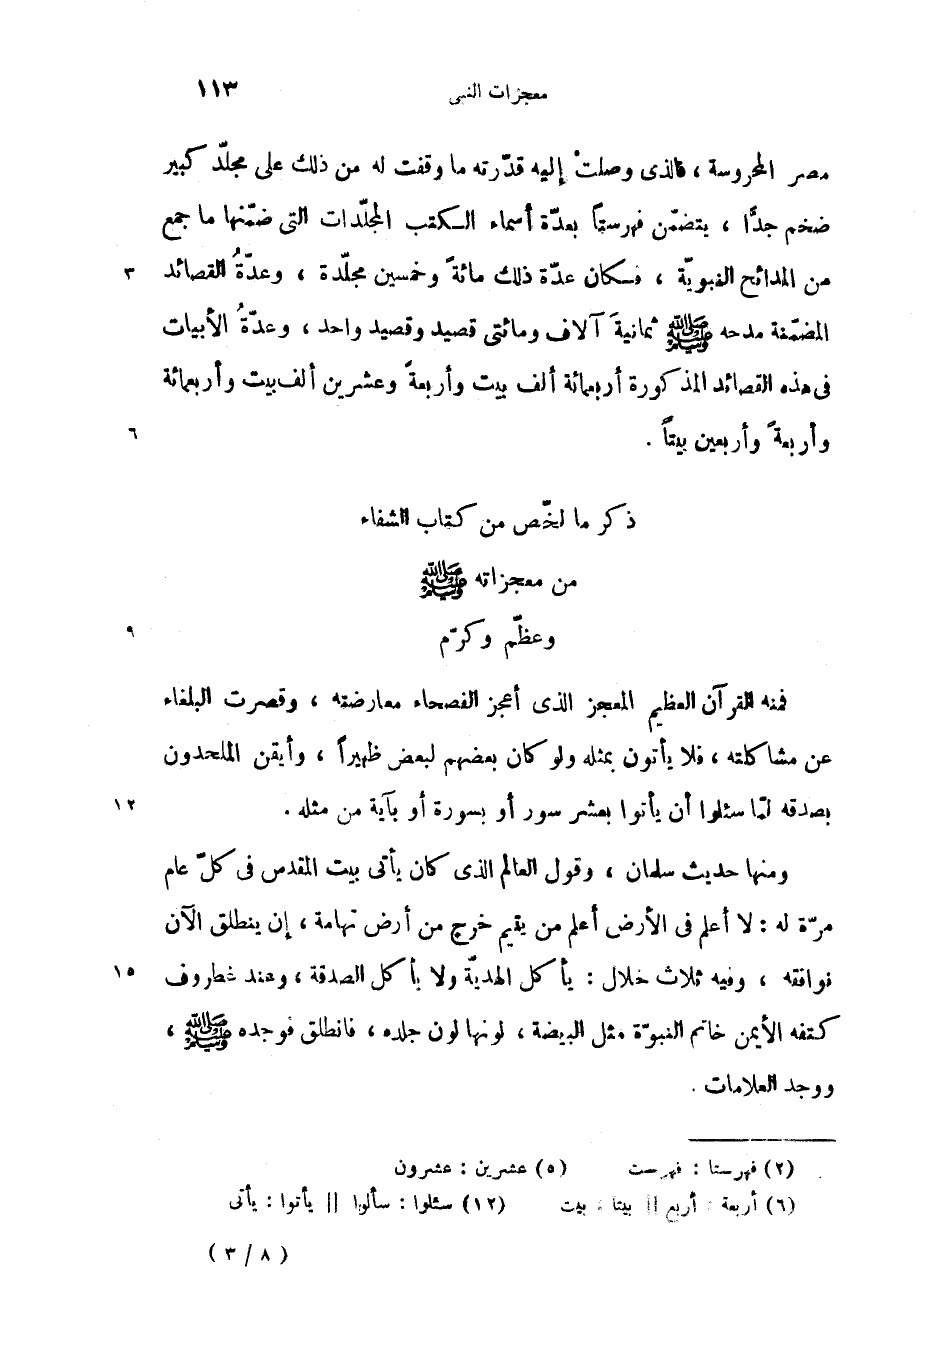 معجزات النبى ١١٣
مصر المحروسة ، فالذى وصلتْ إليه قدّرته ما وقفت له من ذلك على مجلّد كبير
ضخم جدًّا ، يتضمّن فهرستاً بعدّة أسماء الكتب المجلّدات التى ضمّنها ما جمع
من المدائح النبويّة ، فكان عدّة ذلك مائةً وخمسين مجلّدة ، وعدّةُ القصائد ٣
المضمّنة مدحه ﷺ ثمانيةَ آلاف ومائتى قصيد وقصيد واحد ، وعدّةُ الأبيات
فى هذه القصائد المذكورة أربعمائة ألف بيت وأربعةً وعشرين ألف بيت وأربعمائة
وأربعةً وأربعين بيتاً . ٦
ذكر ما لخّص من كتاب الشفاء
من معجزاته ﷺ
وعظّم وكرّم ٩
فمنه القرآن العظيم المعجز الذى أعجز الفصحاء معارضته ، وقصرت البلغاء
عن مشاكلته ، فلا يأتون بمثله ولو كان بعضهم لبعض ظهيراً ، وأيقن الملحدون
بصدقه لمّا سئلوا أن يأتوا بعشر سور أو بسورة أو بآية من مثله . ١٢
ومنها حديث سلمان ، وقول العالم الذى كان يأتى بيت المقدس فى كلّ عام
مرّة له : لا أعلم فى الأرض أعلم من يقيم خرج من أرض تهامة ، إن ينطلق الآن
نوافقه ، وفيه ثلاث خلال : يأكل الهديّة ولا يأكل الصدقة ، وعند غطروف ١٥
كتفه الأيمن خاتم النبوّة مثل البيضة ، لونها لون جلده ، فانطلق فوجده ﷺ ،
ووجد العلامات .
(٢) فهرستا : فهرست (٥) عشرين : عشرون
(٦) أربعة : أربع || بيتا : بيت (١٢) سئلوا : سألوا || يأتوا : يأتى
(٣ / ٨)